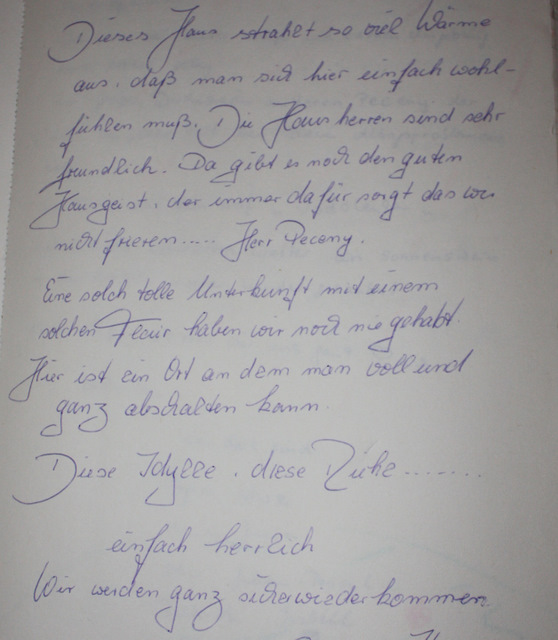 Dieses Haus strahlt so viel Wärme
aus, daß man sich hier einfach wohl-
fühlen muß. Die Hausherren sind sehr
freundlich. Da gibt es noch den guten
Hausgeist, der immer dafür sorgt das wir
nicht frieren..... Herr Pecony.
Eine solch tolle Unterkunft mit einem
solchen Flair haben wir noch nie gehabt.
Hier ist ein Ort an dem man voll und
ganz abschalten kann.
Diese Idylle, diese Ruhe.......
einfach herrlich
Wir werden ganz sicher wieder kommen.